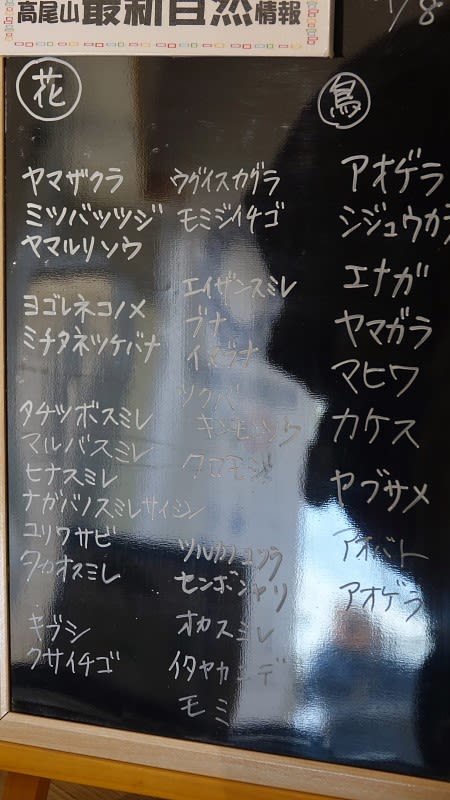 高尾山最新自然情報
/8
花
ヤマザクラ
ミツバツツジ
ヤマルリソウ
ヨゴレネコノメ
ミチタネツケバナ
タチツボスミレ
マルバスミレ
ヒナスミレ
ナガバノスミレサイシン
ユリワサビ
タカオスミレ
キブシ
クサイチゴ
ウグイスカグラ
モミジイチゴ
エイザンスミレ
ブナ
イヌブナ
ソクバ
キシモツケ
クロモジ
ツルカノコソウ
センボンヤリ
オカスミレ
イタヤカエデ
モミ
鳥
アオゲラ
シジュウカラ
エナガ
ヤマガラ
マヒワ
カケス
ヤブサメ
アオバト
アオゲラ